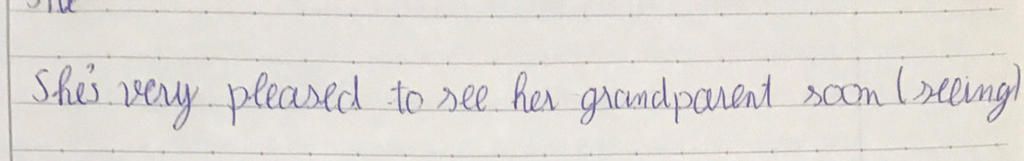 She's very pleased to see her grandparent soon (seeing)